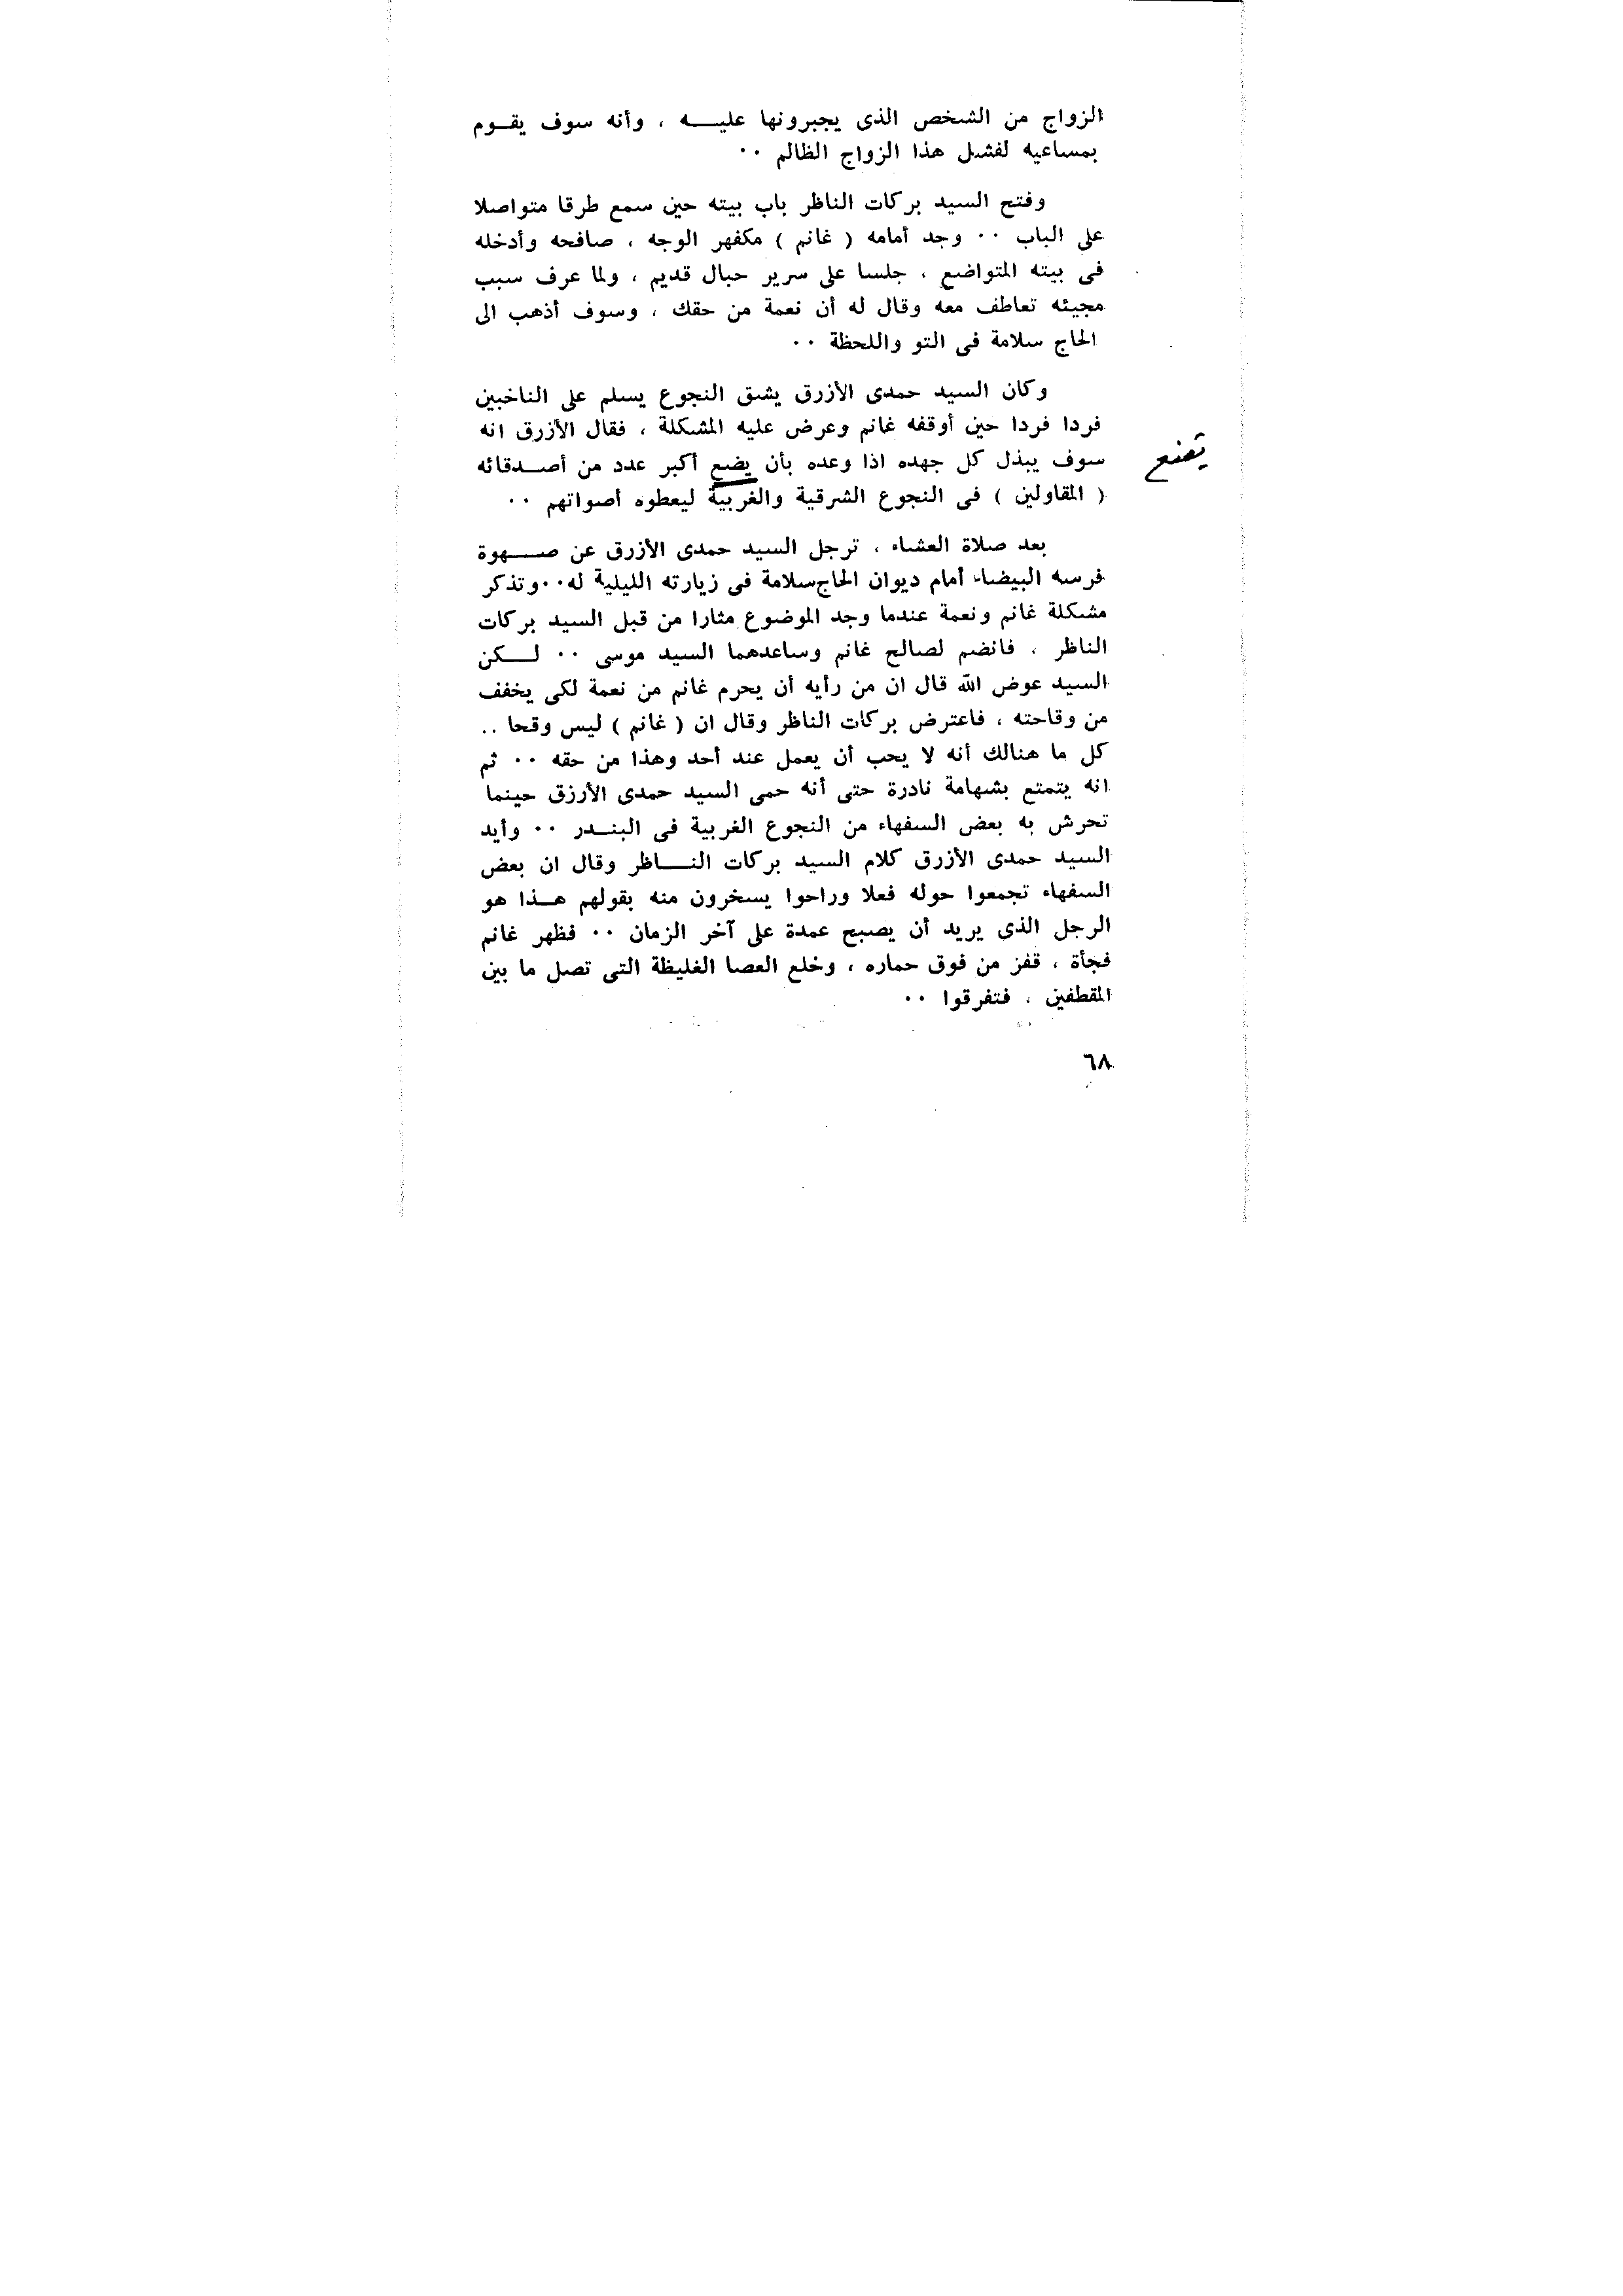 الزواج من الشخص الذى يجبرونها عليه ، وأنه سوف يقوم
بمساعيه لفشل هذا الزواج الظالم ٠٠
وفتح السيد بركات الناظر باب بيته حين سمع طرقا متواصلا
على الباب ٠٠ وجد أمامه ( غانم ) مكفهر الوجه ، صافحه وأدخله
فى بيته المتواضع ، جلسا على سرير حبال قديم ، ولما عرف سبب
مجيئه تعاطف معه وقال له أن نعمة من حقك ، وسوف أذهب الى
الحاج سلامة فى التو واللحظة ٠٠
وكان السيد حمدى الأزرق يشق النجوع يسلم على الناخبين
فردا فردا حين أوقفه غانم وعرض عليه المشكلة ، فقال الأزرق انه
سوف يبذل كل جهده اذا وعده بأن يضع أكبر عدد من أصدقائه
يقنع
( المقاولين ) فى النجوع الشرقية والغربية ليعطوه أصواتهم ٠٠
بعد صلاة العشاء ، ترجل السيد حمدى الأزرق عن صهوة
فرسه البيضاء أمام ديوان الحاج سلامة فى زيارته الليلية له٠٠وتذكر
مشكلة غانم ونعمة عندما وجد الموضوع مثارا من قبل السيد بركات
الناظر ، فانضم لصالح غانم وساعدهما السيد موسى ٠٠ لكن
السيد عوض الله قال ان من رأيه أن يحرم غانم من نعمة لكى يخفف
من وقاحته ، فاعترض بركات الناظر وقال ان ( غانم ) ليس وقحا ..
كل ما هنالك أنه لا يحب أن يعمل عند أحد وهذا من حقه ٠٠ ثم
انه يتمتع بشهامة نادرة حتى أنه حمى السيد حمدى الأرزق حينما
تحرش به بعض السفهاء من النجوع الغربية فى البندر ٠٠ وأيد
السيد حمدى الأزرق كلام السيد بركات الناظر وقال ان بعض
السفهاء تجمعوا حوله فعلا وراحوا يسخرون منه بقولهم هذا هو
الرجل الذى يريد أن يصبح عمدة على آخر الزمان ٠٠ فظهر غانم
فجأة ، قفز من فوق حماره ، وخلع العصا الغليظة التى تصل ما بين
المقطفين ، فتفرقوا ٠٠
٦٨